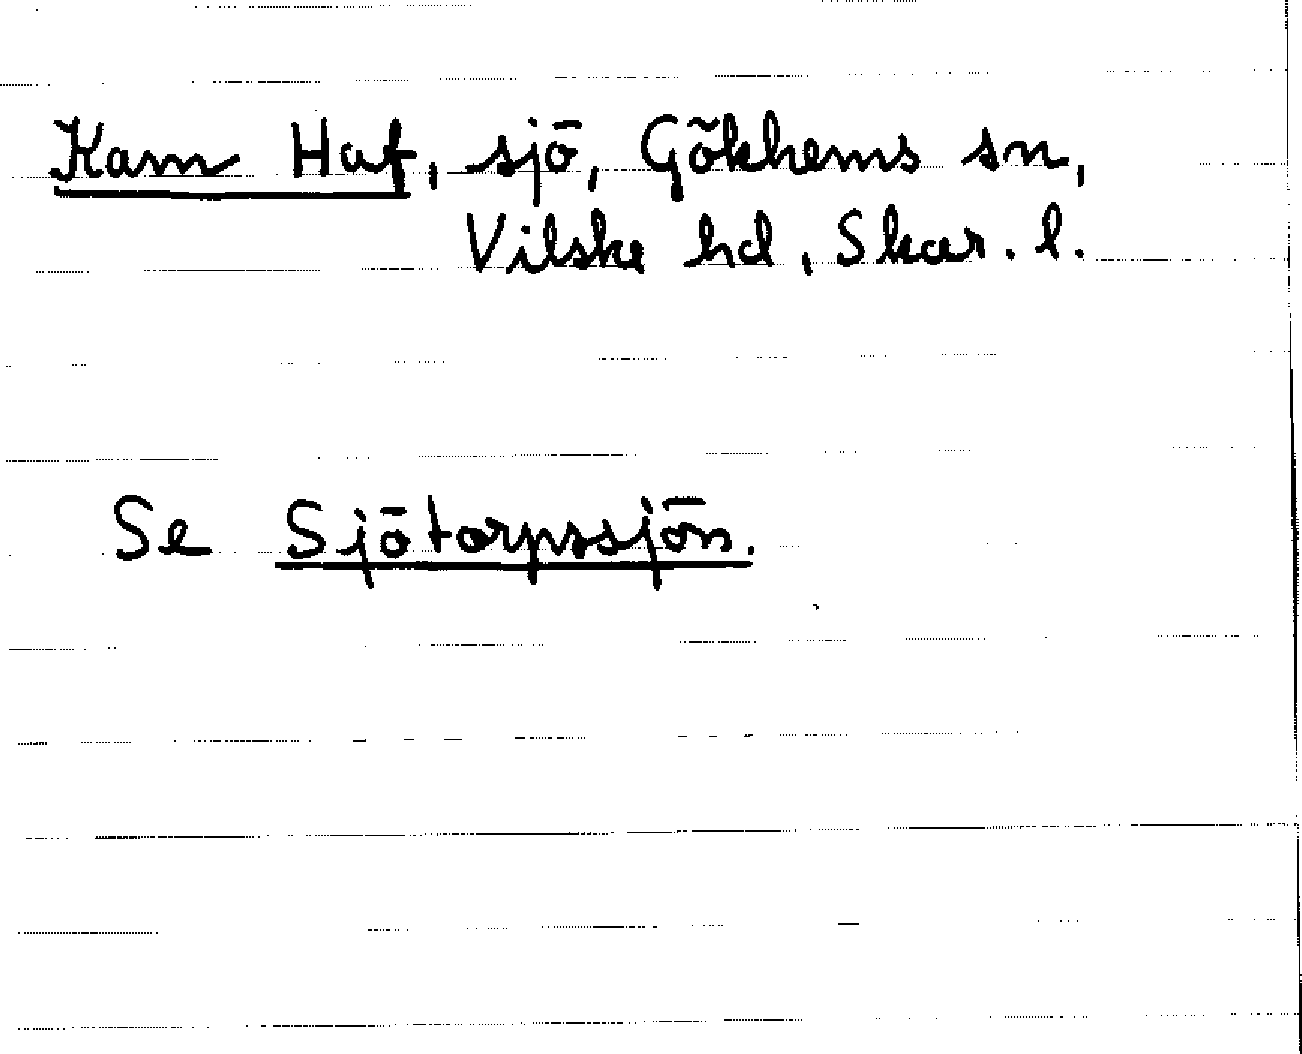 Kam Haf, sjö, Gökhems sn,
Vilske hd, Skar. l.
Se Sjötorpssjön.